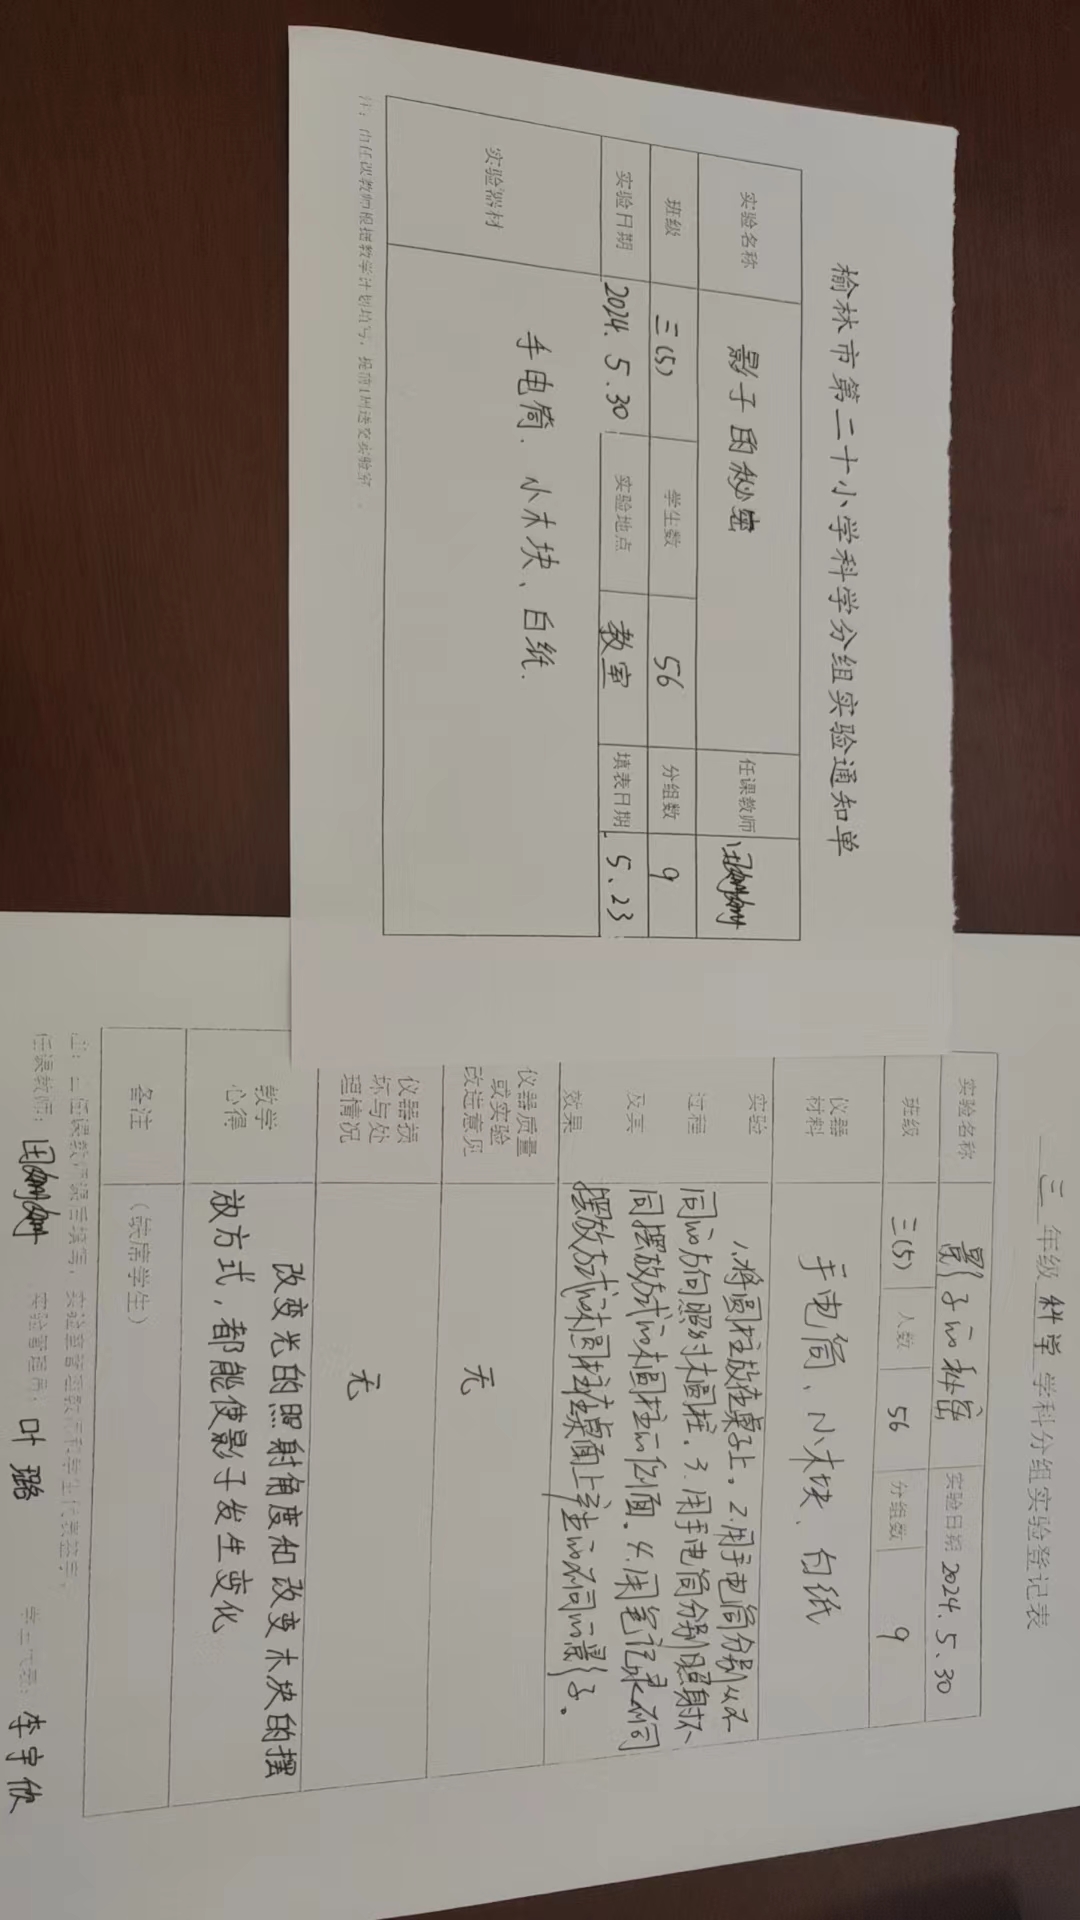 榆林市第二十小学科学分组实验通知单
实验名称 影子的秘密 任课教师
班级 三(5) 学生数 56 分组数 9
实验日期 2024.5.30 实验地点 教室 填表日期 5.23
实验器材 手电筒、小木块、白纸.
注：由任课教师根据教学计划填写，提前1周送交实验室。
三年级科学学科分组实验登记表
实验名称 影子的秘密 实验日期 2024.5.30
班级 三(5) 人数 56 分组数 9
仪器
材料
手电筒、小木块、白纸
实验
过程
及其
效果
1.将圆柱放在桌子上。2.用手电筒分别从不
同的方向照射木圆柱。3.用手电筒分别照射不
同摆放方式的木圆柱的侧面。4.用笔记录不同
摆放方式的木圆柱在桌面上产生的不同的影子。
仪器质量
或实验
改进意见
无
仪器损
坏与处
理情况
无
教学
心得
改变光的照射角度和改变木块的摆
放方式，都能使影子发生变化
备注 （缺席学生）
注：由任课教师课后填写，实验室管理教师和学生代表签字。
任课教师： 实验管理员：叶璐 学生代表：李宇欣